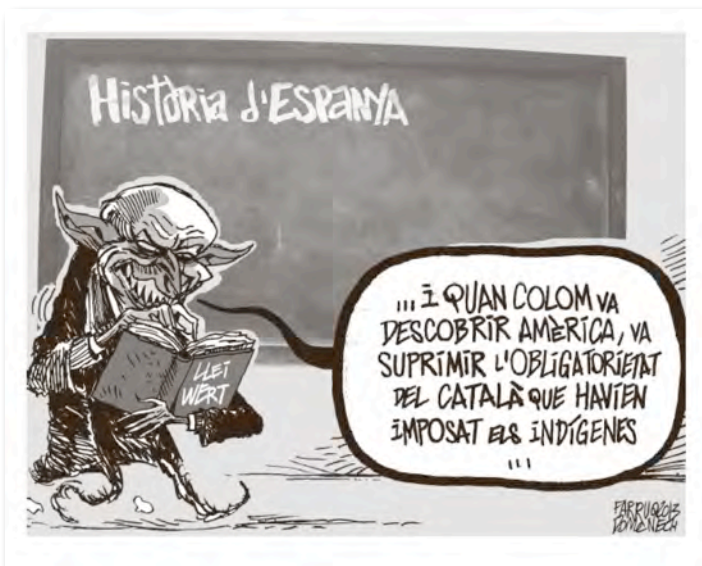 Història d'ESPANYA
LLEI
WERT
... I QUAN COLOM VA
DESCOBRIR AMÈRICA, VA
SUPRIMIR L'OBLIGATORIETAT
DEL CATALÀ QUE HAVIEN
IMPOSAT ELS INDÍGENES
...
FARRUQO 2013
DOMENECH